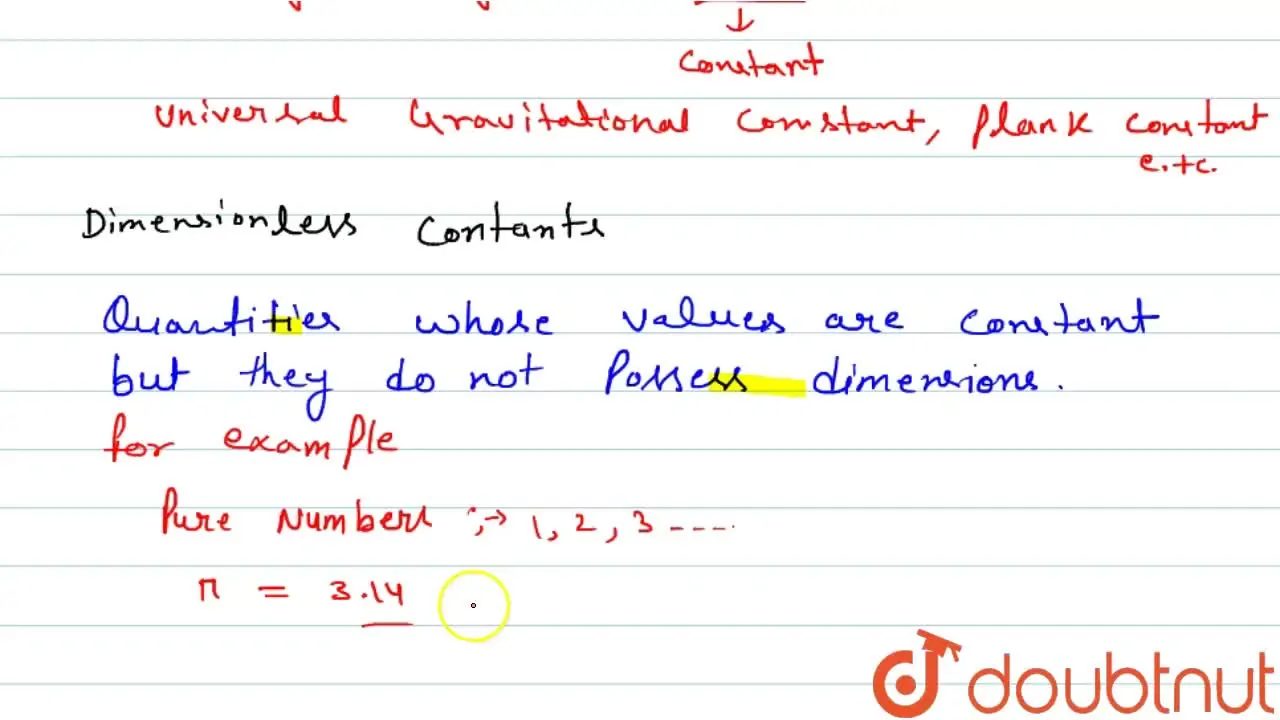 constant
Universal Gravitational comstant, Plank constant
e.tc.
Dimensionless Contants
Quantities whose values are constant
but they do not Possess dimensions.
for example
Pure Numbers :→ 1, 2, 3 ----.
π = 3.14
doubtnut